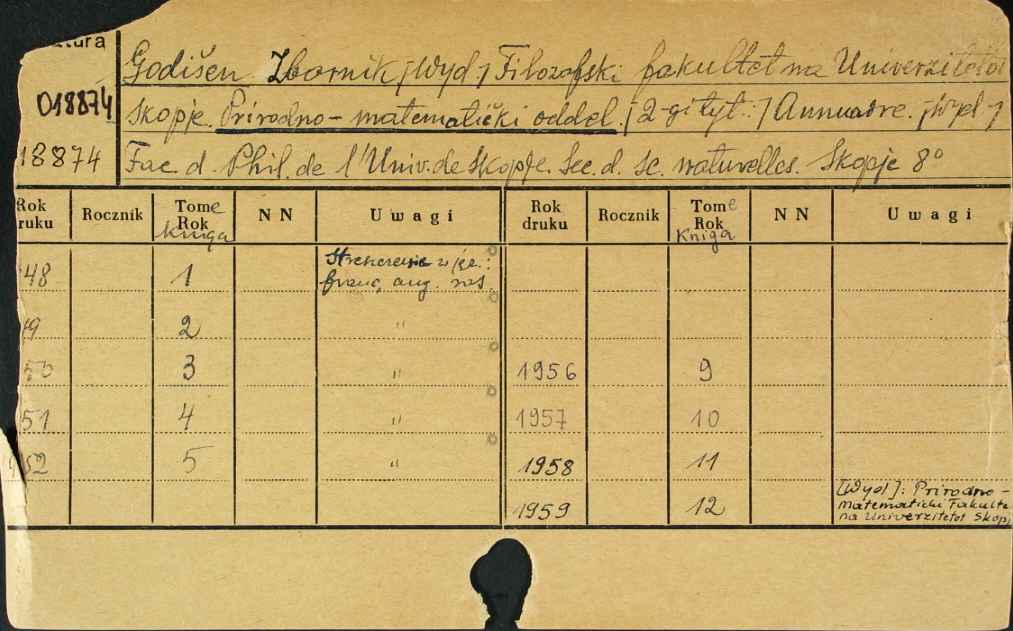 tura
018874
18874
Godišen Zbornik [Wyd.] Filozofski fakultet na Univerzitetot
Skopje. Prirodno-matematički oddel. [2-gi tyt.:] Annuaire. [Wyd.]
Fac. d. Phil. de l'Univ. de Skopje. Sec. d. sc. naturelles. Skopje 8°
Rok druku Rocznik Tome Rok Kniga NN Uwagi Rok druku Rocznik Tome Rok Kniga NN Uwagi
48 1 Streszczenie w jęz.:
franc, ang. ros.
49 2 "
50 3 " 1956 9
51 4 " 1957 10
952 5 " 1958 11
1959 12 [Wyd.]: Prirodno-
matematički Fakulte
na Univerzitetot Skop